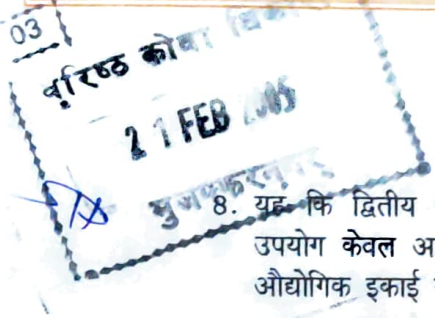 03
वरिष्ठ कोषा
21 FEB 2005
मुजफ्फरनगर
8. यह कि द्वितीय
उपयोग केवल अ
औद्योगिक इकाई